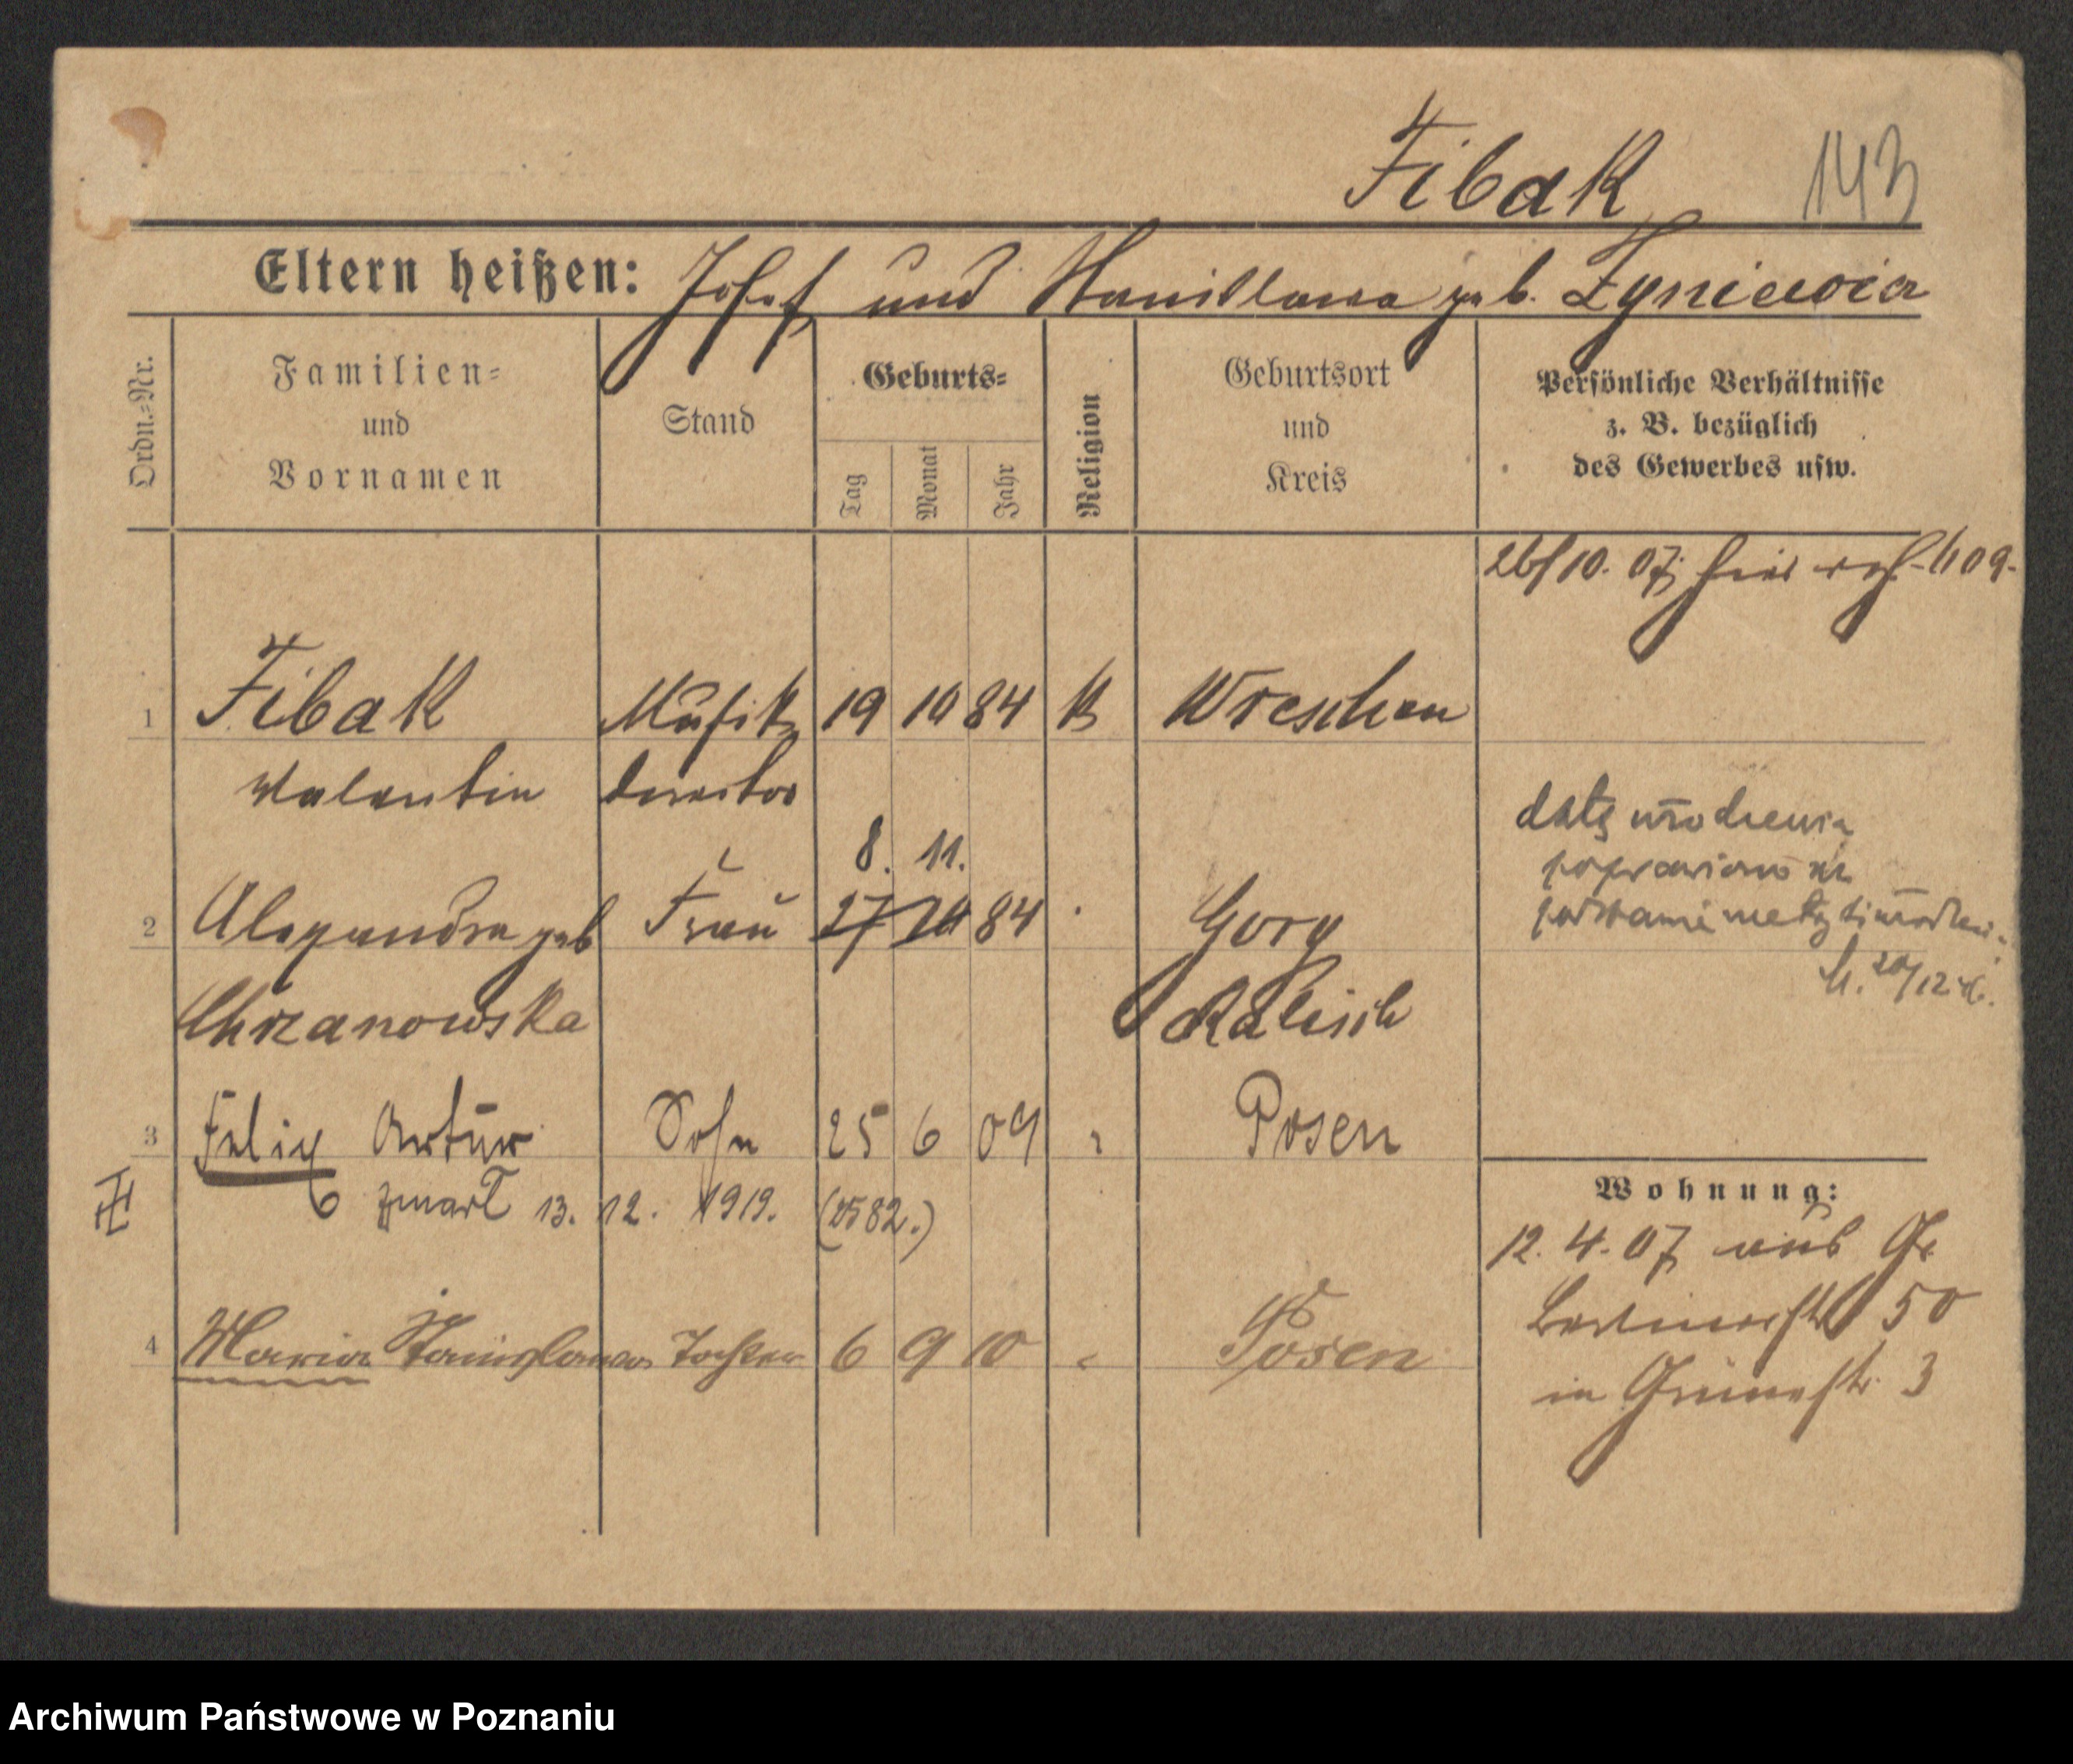 Fibak 143
Eltern heißen: Josef und Stanislawa geb. Zyniewicz
Ordn.-Nr.
Familien-
und
Vornamen
Stand
Geburts-
Tag
Monat
Jahr
Religion
Geburtsort
und
Kreis
Persönliche Verhältnisse
z. B. bezüglich
des Gewerbes usw.
26/10. 07. hier
1 Fibak Musik 19 10 84 K Wreschen
Valentin
8. 11.
2 Alexandra geb Frau 27 10 84 Gory
Chrzanowska Kalisch
datę urodzenia
poprawiono na
podstawie metryki urodzenia
20/12
3 Felix Artur Sohn 25 6 09 " Posen
zmarł 13. 12. 1919. (2582.)
4 Maria Stanislawa Tochter 6 9 10 " Posen
Wohnung:
12. 4. 07 aus Gr
Berlinerstr 50
in Grünestr. 3
Archiwum Państwowe w Poznaniu